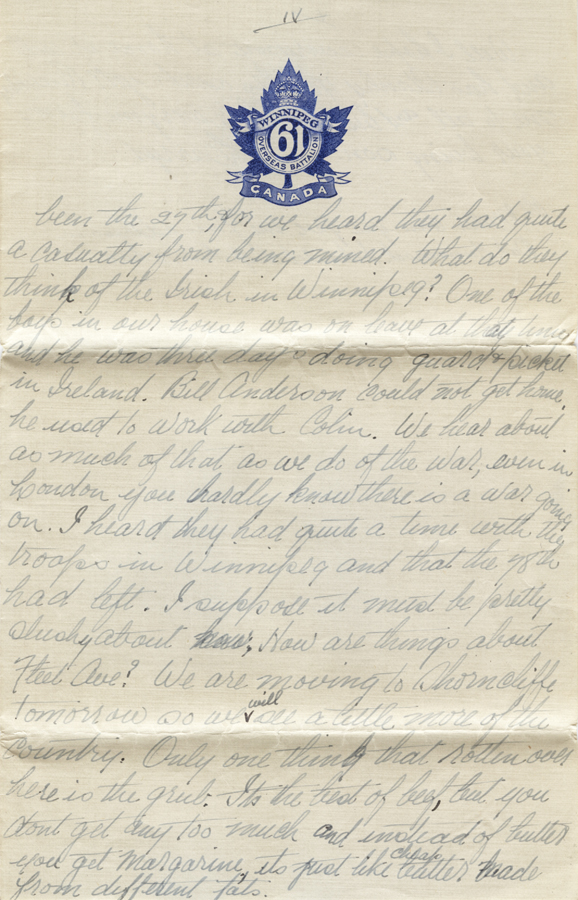 IV
WINNIPEG
61
OVERSEAS BATTALION
CANADA
been the 27th, for we heard they had quite
a casualty from being mined. What do they
think of the Irish in Winnipeg? One of the
boys in our house was on leave at that time
and he was three days doing guard & picket
in Ireland. Bill Anderson could not get home,
he used to work with Colin. We hear about
as much of that as we do of the war, even in
London you hardly know there is a war going
on. I heard they had quite a time with the
troops in Winnipeg and that the 78th
had left. I suppose it must be pretty
slushy about now, How are things about
Fleet Ave? We are moving to Shorncliffe
tomorrow so we will see a little more of the
country. Only one thing that rotten over
here is the grub. Its the best of beef, but you
dont get any too much and instead of butter
you get Margarine, its just like cheap butter made
from different fats.